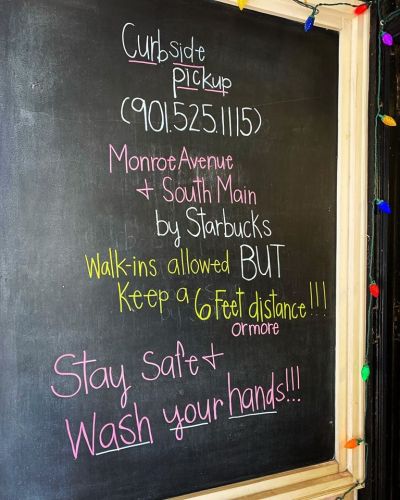 Curbside
pickup
(901.525.1115)
Monroe Avenue
+ South Main
by Starbucks
Walk-ins allowed BUT
Keep a 6 Feet distance!!!
or more
Stay safe +
Wash your hands!!!